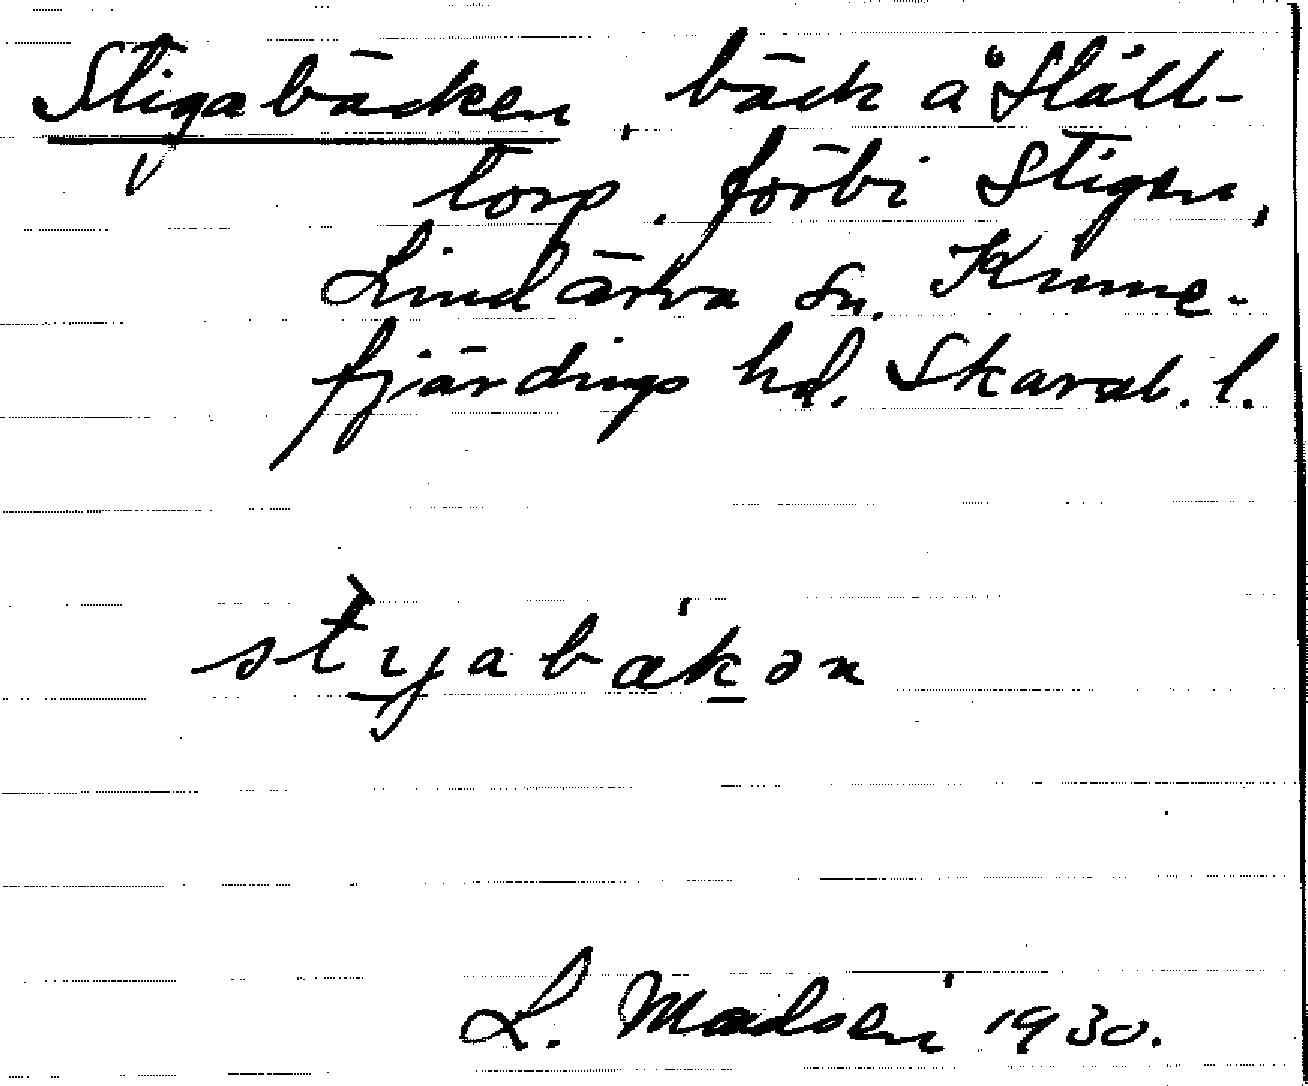 Stigabäcken, bäck å Slätt-
torp, förbi Stigen,
Lindärva sn. Kinne-
fjärdings hd. Skarab. l.
L. Madsen 1930.